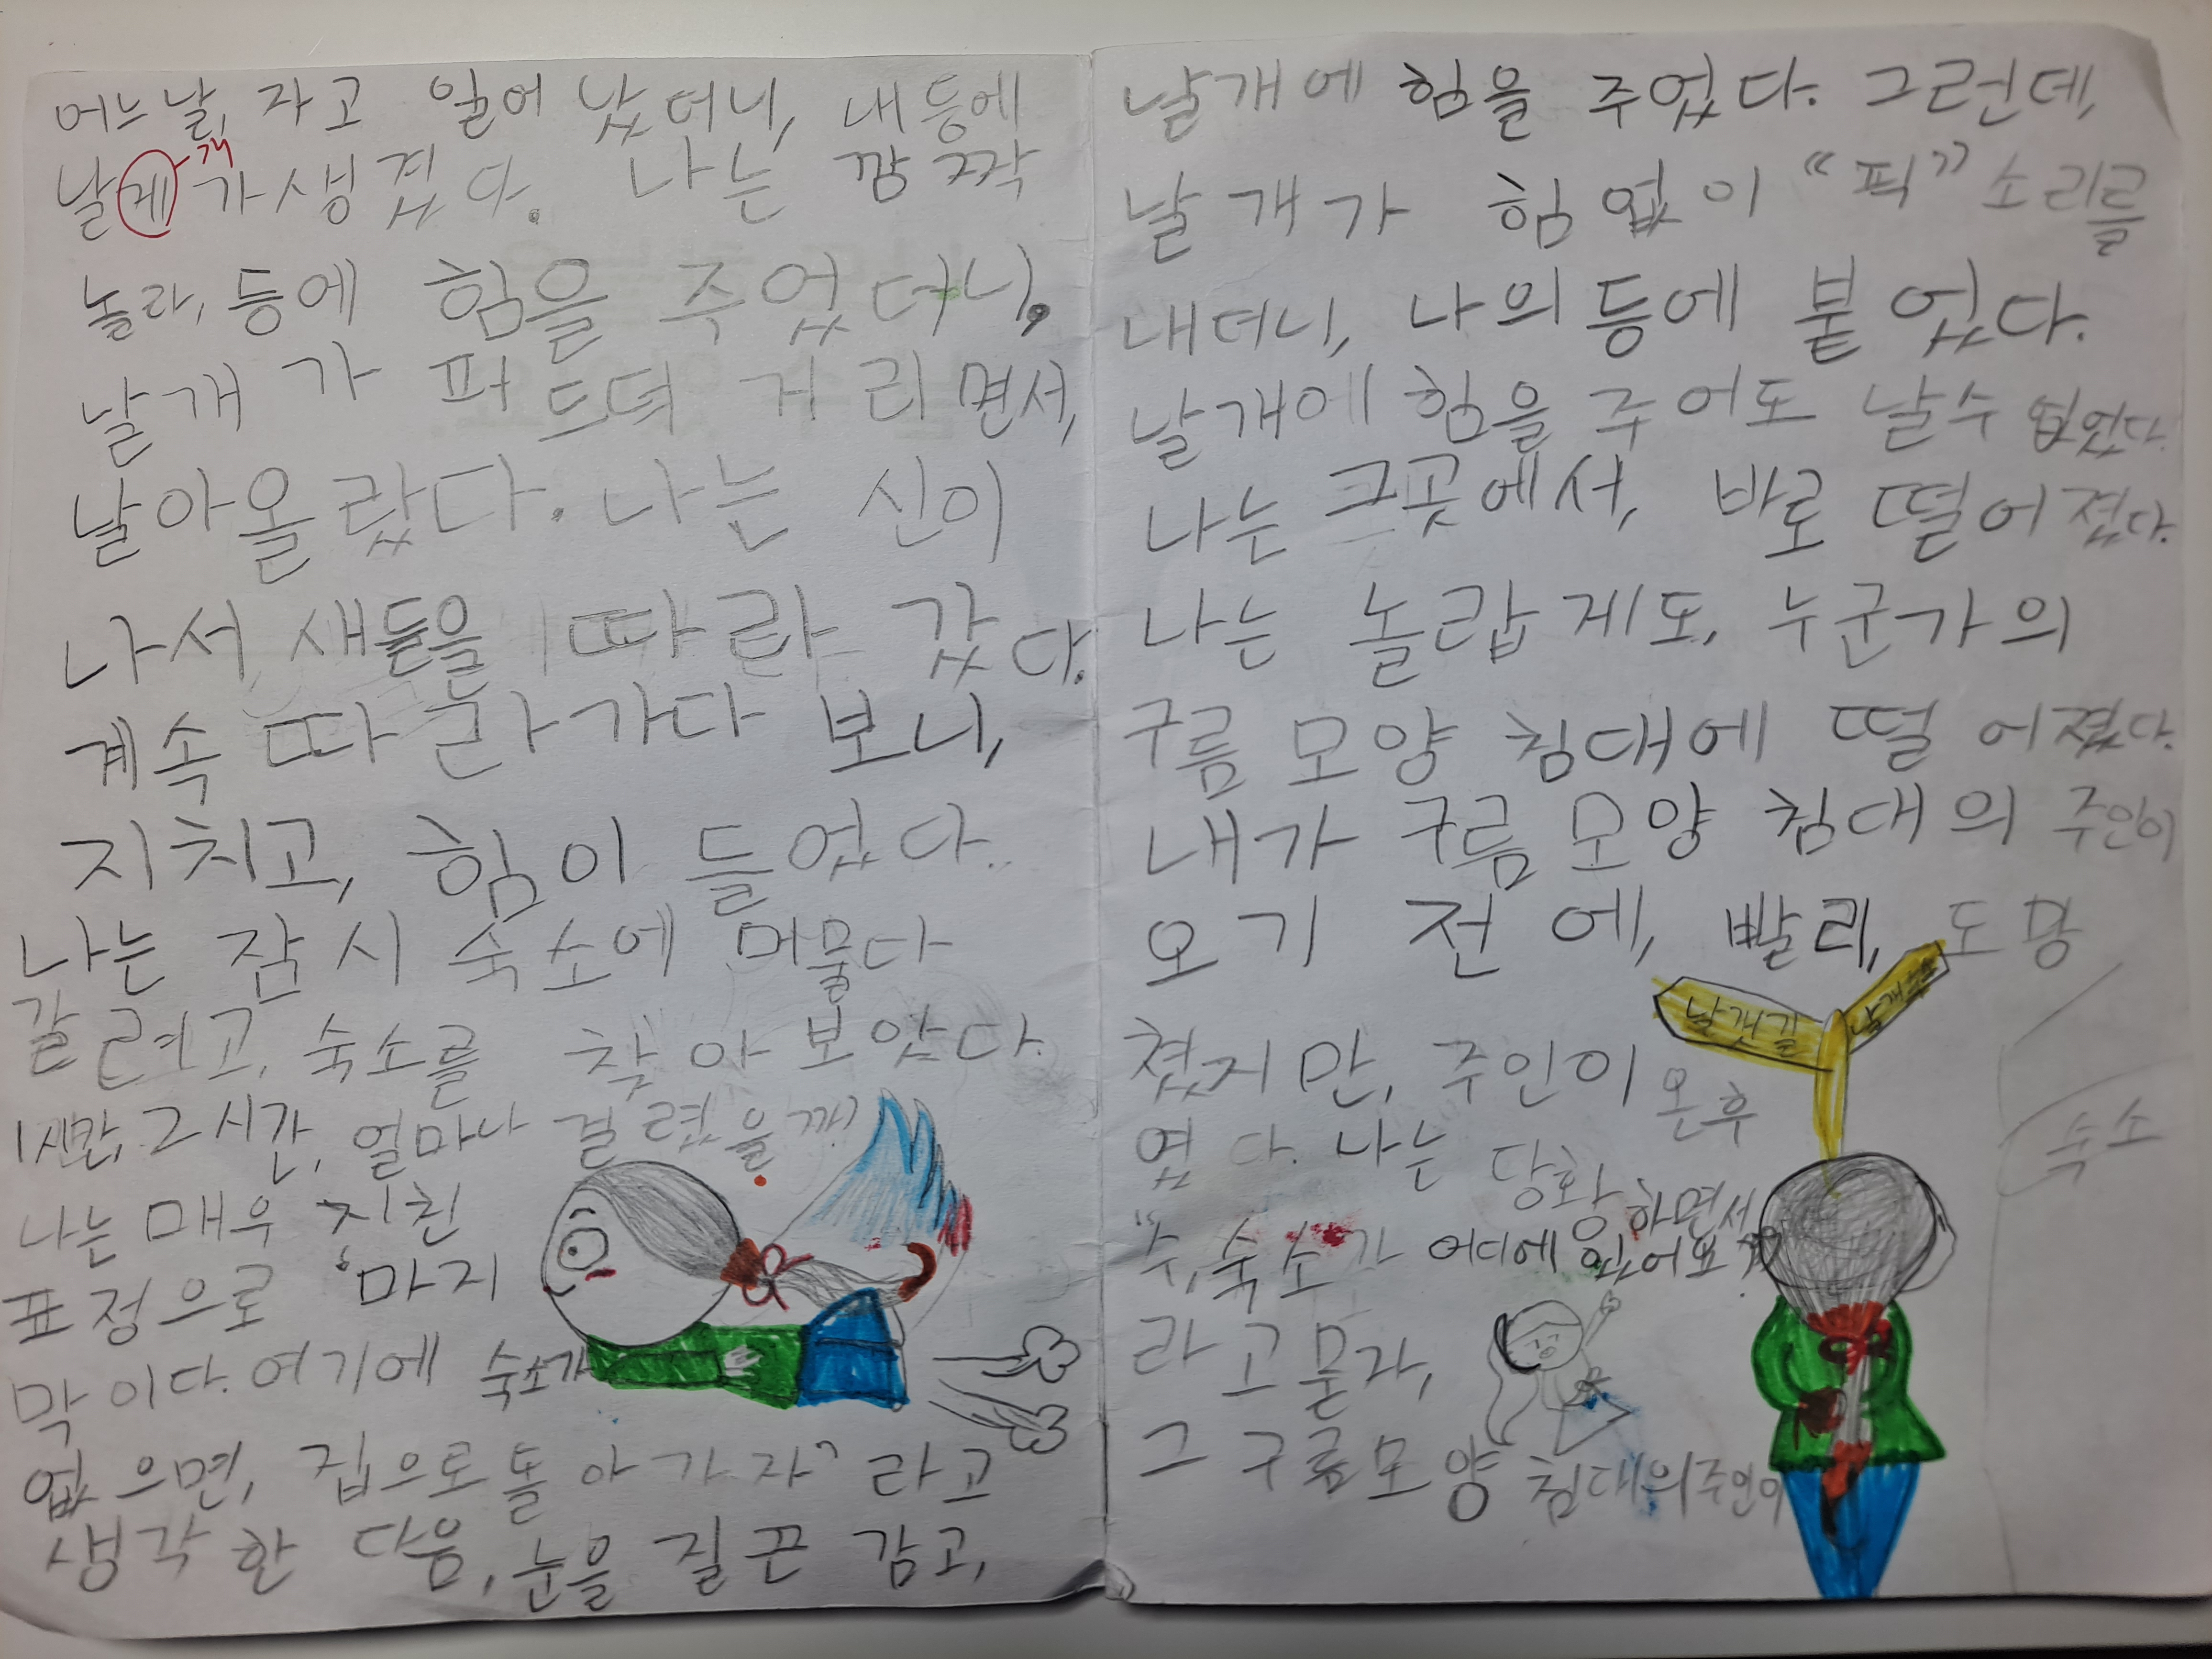 어느날, 자고 일어 났더니, 내 등에
개
날게가 생겼다. 나는 깜짝
놀라, 등에 힘을 주었더니,
날개가 퍼드덕 거리면서,
날아올랐다. 나는 신이
나서 새들을 따라 갔다.
계속 따라가다 보니,
지치고, 힘이 들었다.
나는 잠시 숙소에 머물다
갈려고, 숙소를 찾아보았다.
1시간, 2시간, 얼마나 걸렸을까?
나는 매우 지친
표정으로 '마지
막이다. 여기에 숙소가
없으면, 집으로 돌아가자' 라고
생각한 다음, 눈을 질끈 감고,
날개에 힘을 주었다. 그런데,
날개가 힘없이 "픽" 소리를
내더니, 나의 등에 붙었다.
날개에 힘을 주어도 날수 없었다.
나는 그곳에서, 바로 떨어졌다.
나는 놀랍게도, 누군가의
구름 모양 침대에 떨어졌다.
내가 구름 모양 침대의 주인이
오기 전에, 빨리, 도망
쳤지만, 주인이 온후
였다. 나는 당황하면서
"수, 숙소가 어디에 있어요?"
라고 묻자,
그 구름모양 침대의 주인이
날갯길
숙소